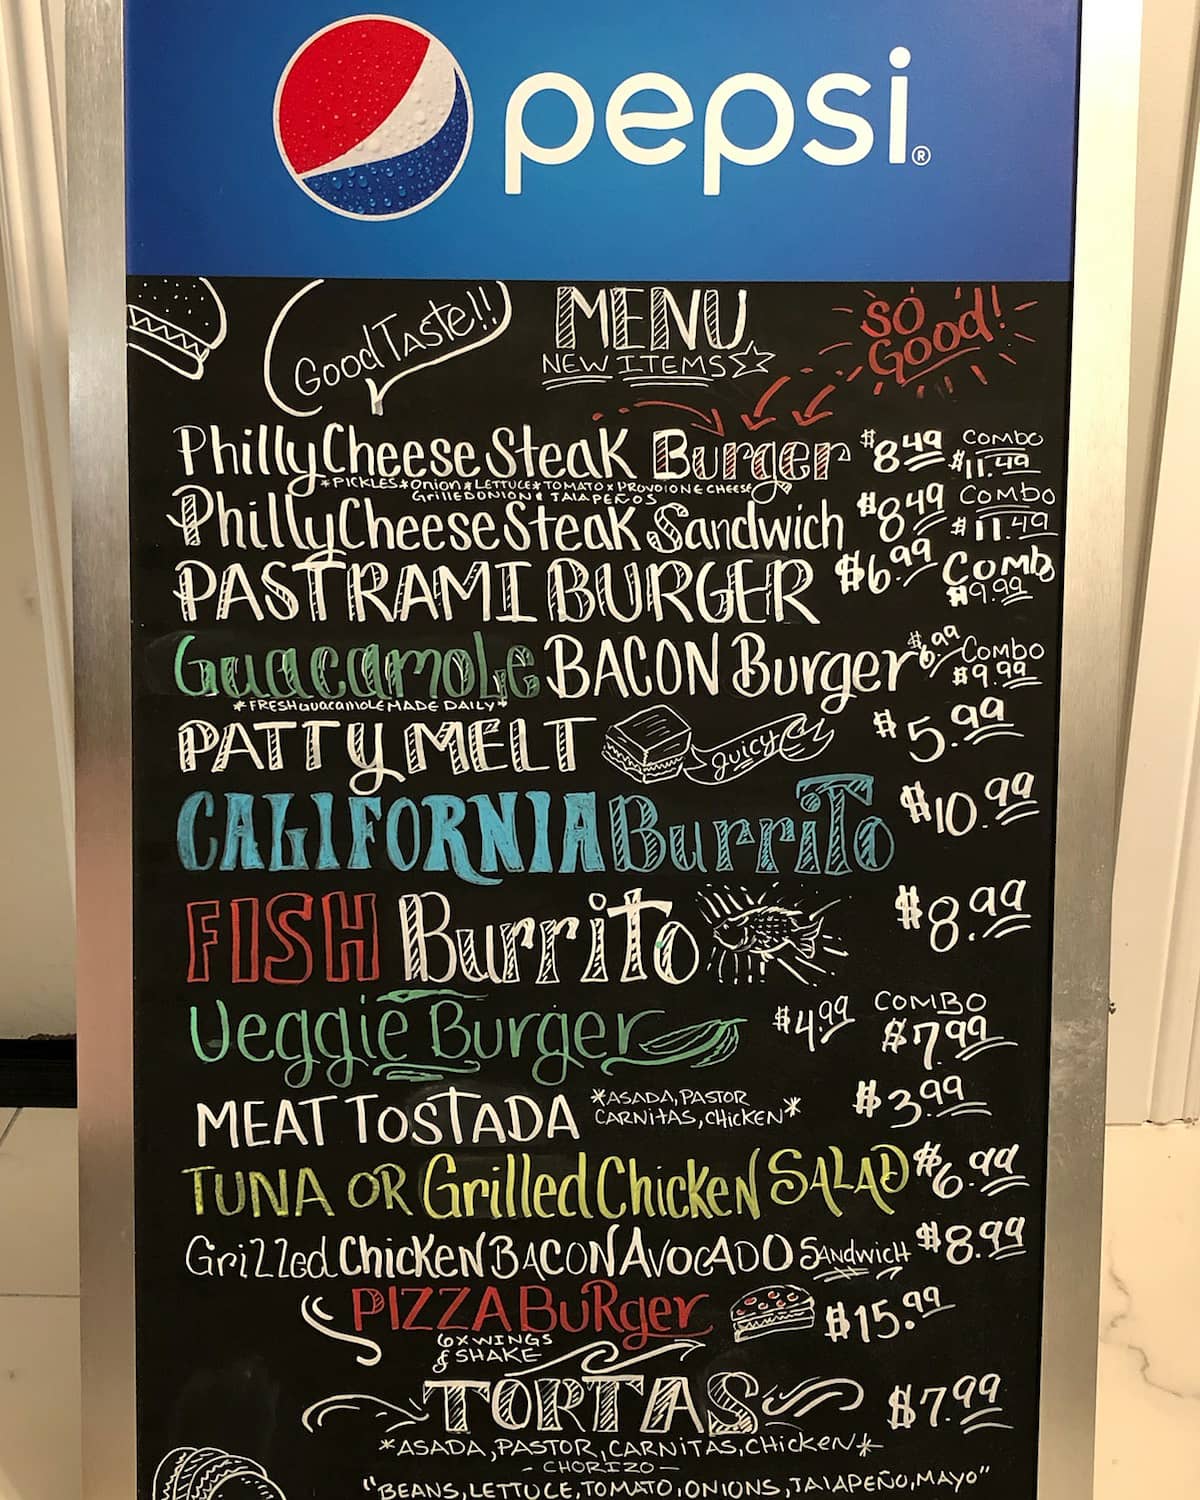 pepsi®
Good TASTE!!
MENU
NEW ITEMS
SO
Good!
Philly Cheese Steak Burger $8.49 COMBO $11.49
*PICKLES*Onion*LETTUCE*TOMATO*PROVOIONE CHEESE
GrillEDONION & JAlAPEÑOS
Philly Cheese Steak Sandwich $8.49 COMBO $11.49
PASTRAMI BURGER $6.99 COMbo $9.99
Guacamole BACON Burger $6.99 COMBO $9.99
*FRESH GuacamolE MADE DAILY*
PATTY MELT juicy $5.99
CALIFORNIA Burrito $10.99
FISH Burrito $8.99
Veggie Burger $4.99 COMBO $7.99
MEAT TOSTADA *ASADA, PASTOR $3.99
CARNitAS, CHICKEN*
TUNA OR Grilled Chicken SALAD $6.99
Grilled Chicken BACON AvoCADO SANdwicH $8.99
PIZZA BuRger $15.99
6x WINGS
& SHAKE
TORTAS $7.99
*ASADA, PASTOR, CARNitAS, CHicken*
- CHORIZO -
"BEANS, LETTUCE, TOMATO, ONIONS, JAlAPEÑO, MAYO"